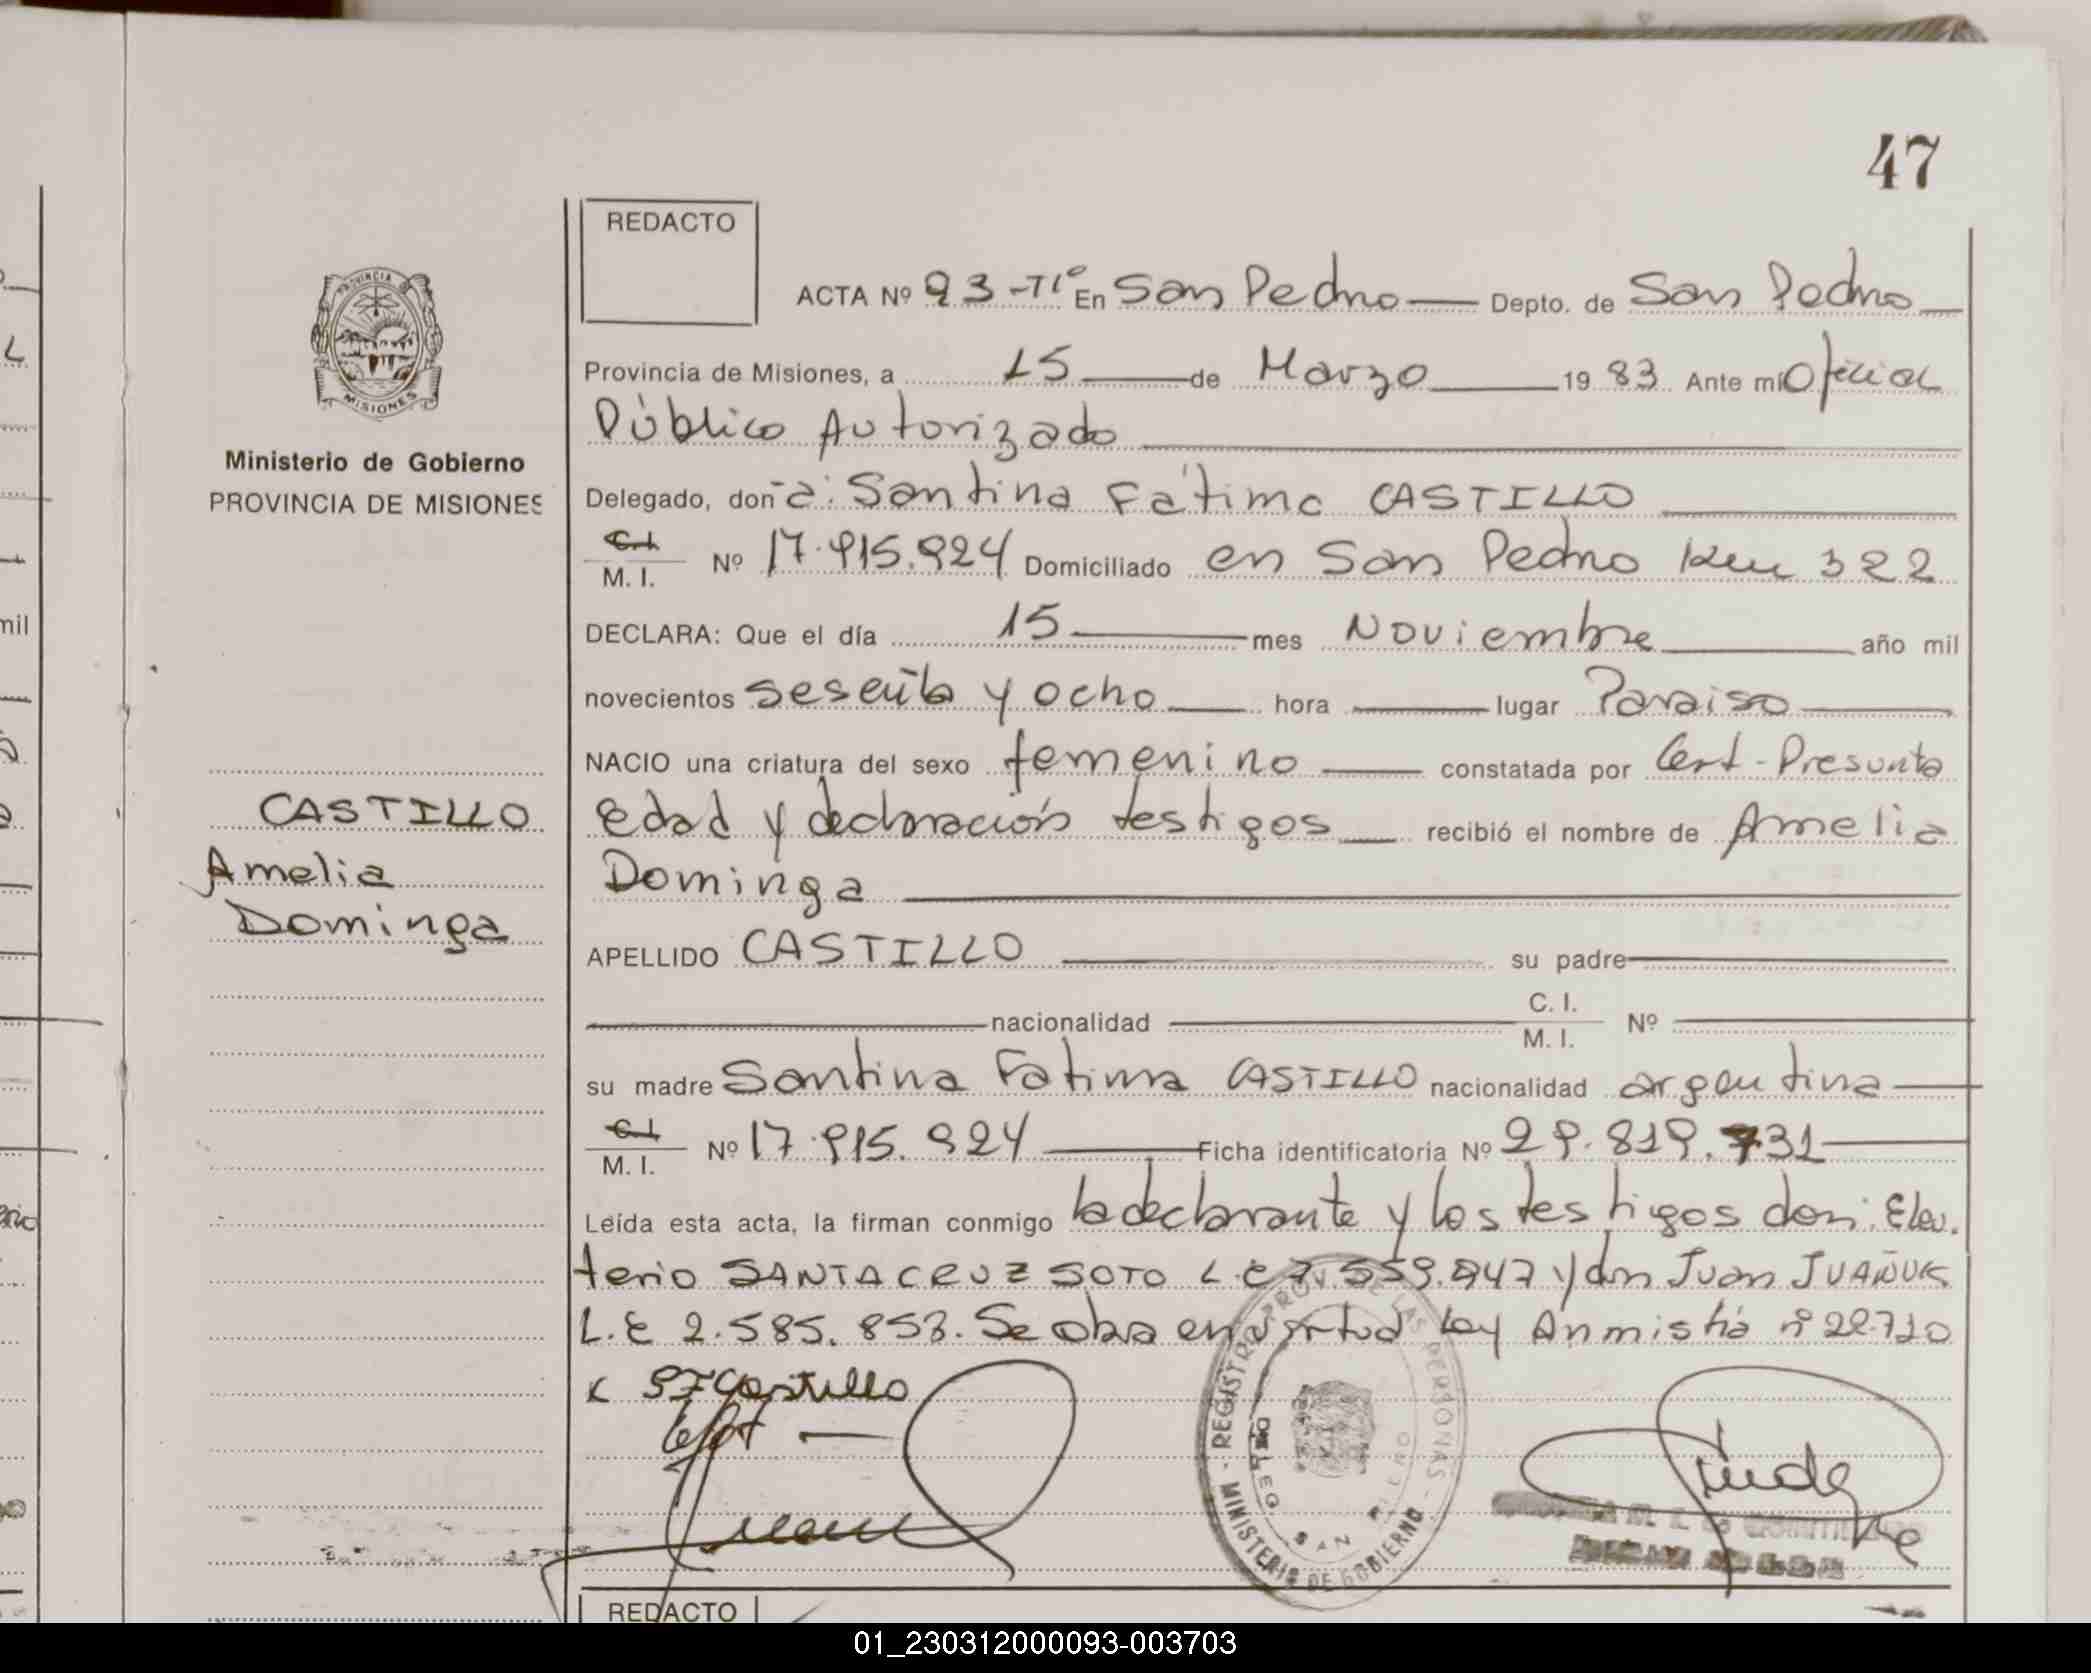 47
REDACTO
ACTA Nº 93-Tº En San Pedro Depto. de San Pedro
PROVINCIA
MISIONES
Provincia de Misiones, a 15 de Marzo 1983 Ante mi Oficial
Público Autorizado
Ministerio de Gobierno
PROVINCIA DE MISIONES
Delegado, don a: Santina Fátima CASTILLO
C.I.
M. I. Nº 17.915.924 Domiciliado en San Pedro Km 322
DECLARA: Que el día 15 mes Noviembre año mil
novecientos sesenta y ocho hora lugar Paraiso
NACIO una criatura del sexo femenino constatada por Cert-Presunta
edad y declaración testigos recibió el nombre de Amelia
Dominga
CASTILLO
Amelia
Dominga
APELLIDO CASTILLO su padre
nacionalidad C. I. M. I. Nº
su madre Santina Fatima CASTILLO nacionalidad argentina
C.I.
M. I. Nº 17.915.924 Ficha identificatoria Nº 29.819.731
Leída esta acta, la firman conmigo la declarante y los testigos don: Eleu.
terio SANTACRUZ SOTO L.E 7.559.947 y don Juan
L.E 2.585.853. Se labra en virtud Ley Anmistía nº 22.720
S F Castillo
MINISTERIO DE GOBIERNO - REGISTRO PROV. DE LAS PERSONAS -
SAN PEDRO
REDACTO
01_230312000093-003703